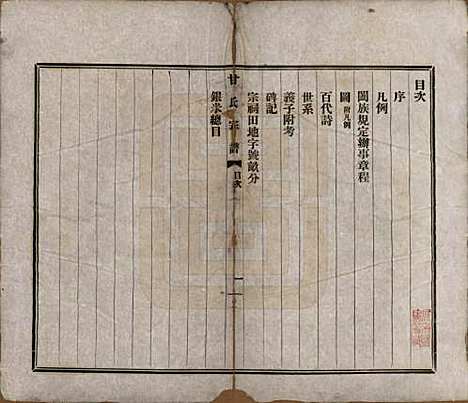 目次
序
凡例
闔族規定辦事章程
圖 附凡例
百代詩
世系
義子附考
碑記
宗祠田地字號畝分
銀洋總目
甘氏宗譜
目次
一